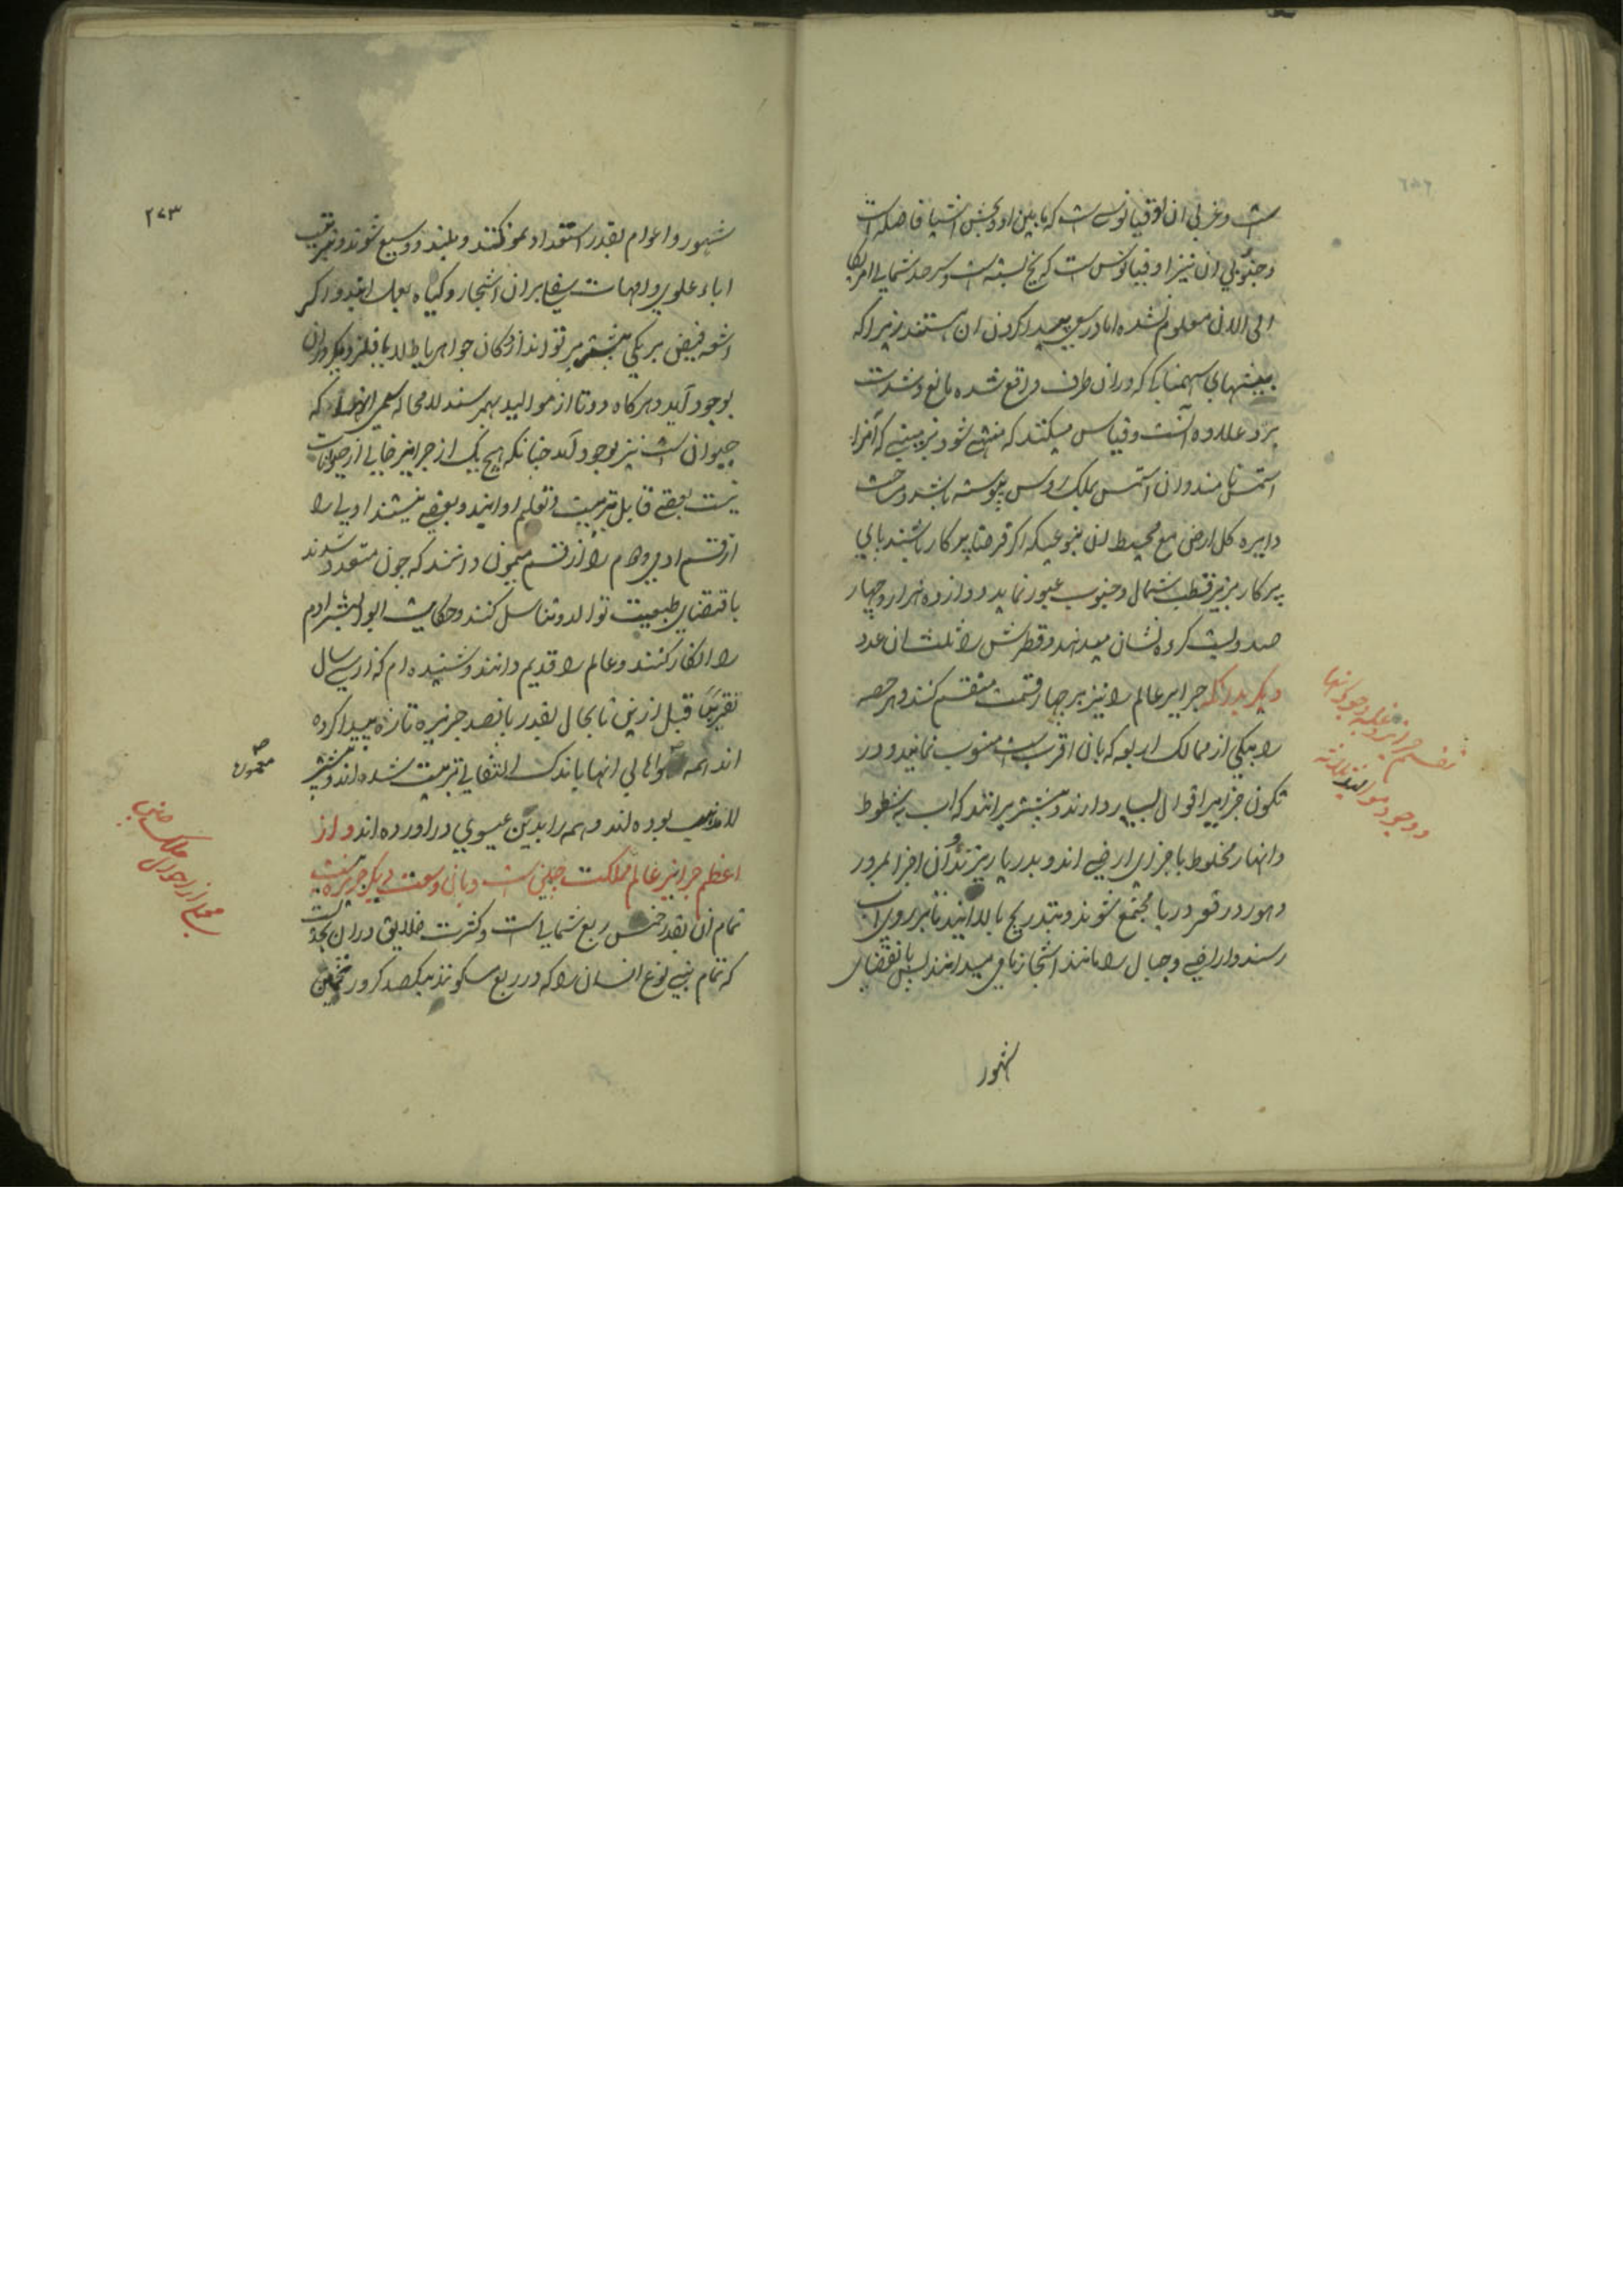 است و غربی ان اوقیانوس است که مابین او و بخش اشیا فاصله است
و جنوبی ان نیز اوقیانوس است که یخ بسته است و سرحد شمالی امریکا
الی الان معلوم نشده اما در سعی پیدا کردن ان هستند زیرا که
سهمناکی که دران طرف واقع شده مانع و شدت
برد علاوه آنست و قیاس میکنند که منتهی شود بزمینی که آنرا
نامند و ان بملک روس پیوسته باشد و مساحت
دایره کل ارض مع محیط ان بنوعیکه اگر فرضا پرکار باشند پای
پرکار بزیر قطب شمال و جنوب عبور نماید دوازده هزار و چهار
صد و بیست کروه نشان میدهد و قطرش را ثلث ان عدد
دیگر بدانکه جزایر عالم را نیز بر چهار قسمت منقسم کنند و هر حصه
را بیکی از ممالک اربعه که بان اقرب است منسوب نمایند و در
تکون جزایر اقوال بسیار دارند و بیشتر برانند که اب شطوط
و انهار مخلوط باجزای ارضی اند و بدریا ریزند و ان اجزا بمرور
دهور در قعر دریا مجتمع شوند و بتدریج بالا ایند تا بر روی اب
رسند و اراضی و جبال را مانند اشجار نامی میدانند پس بانقضای
شهور
تقسیم جزایر عالم و وجود کوهها
و وجود موالید ثلاثه
۲۷۳
شهور و اعوام بقدر استعداد نمو کنند و بلند و وسیع شوند و بتربیت
اباء علوی و امهات سفلی بران اشجار و گیاه بعمل ایند و اگر
اشعه فیض بر یکی بیشتر پرتو اندازد کان جواهر یا طلا یا فلز دیگر دران
بوجود آید و هرگاه دوتا از موالید بهم رسند لامحاله سمی انها که
حیوان است نیز بوجود آید چنانکه هیچ یک از جزایر خالی از حیوانات
نیست بعضی قابل تربیت و تعلیم اوایند و بعضی نیستند ادمی را
از قسم ادمی و هم را از قسم میمون دانند که چون متعدد شدند
باقتضای طبیعت توالد و تناسل کنند و حکایت ابو البشر ادم
را انکار کنند و عالم را قدیم دانند و شنیده ام که از سی سال
تقریبًا قبل ازین تا بحال بقدر پانصد جزیره تازه پیدا کرده
اند همه و اهالی انها باندک التفاتی تربیت شده اند و بیشتر
لامذهب بوده اند و همه را بدین عیسوی دراورده اند و از
اعظم جزایر عالم مملکت چین است و بان وسعت دیگر جزیره نیست
تمام ان بقدر خمس ربع شمالی است و کثرت خلایق دران بحدیست
که تمام بنی نوع انسان را که در ربع مسکونند بیکصد کرور تخمین
معمور
صح
مجملی از احوال ملک چین